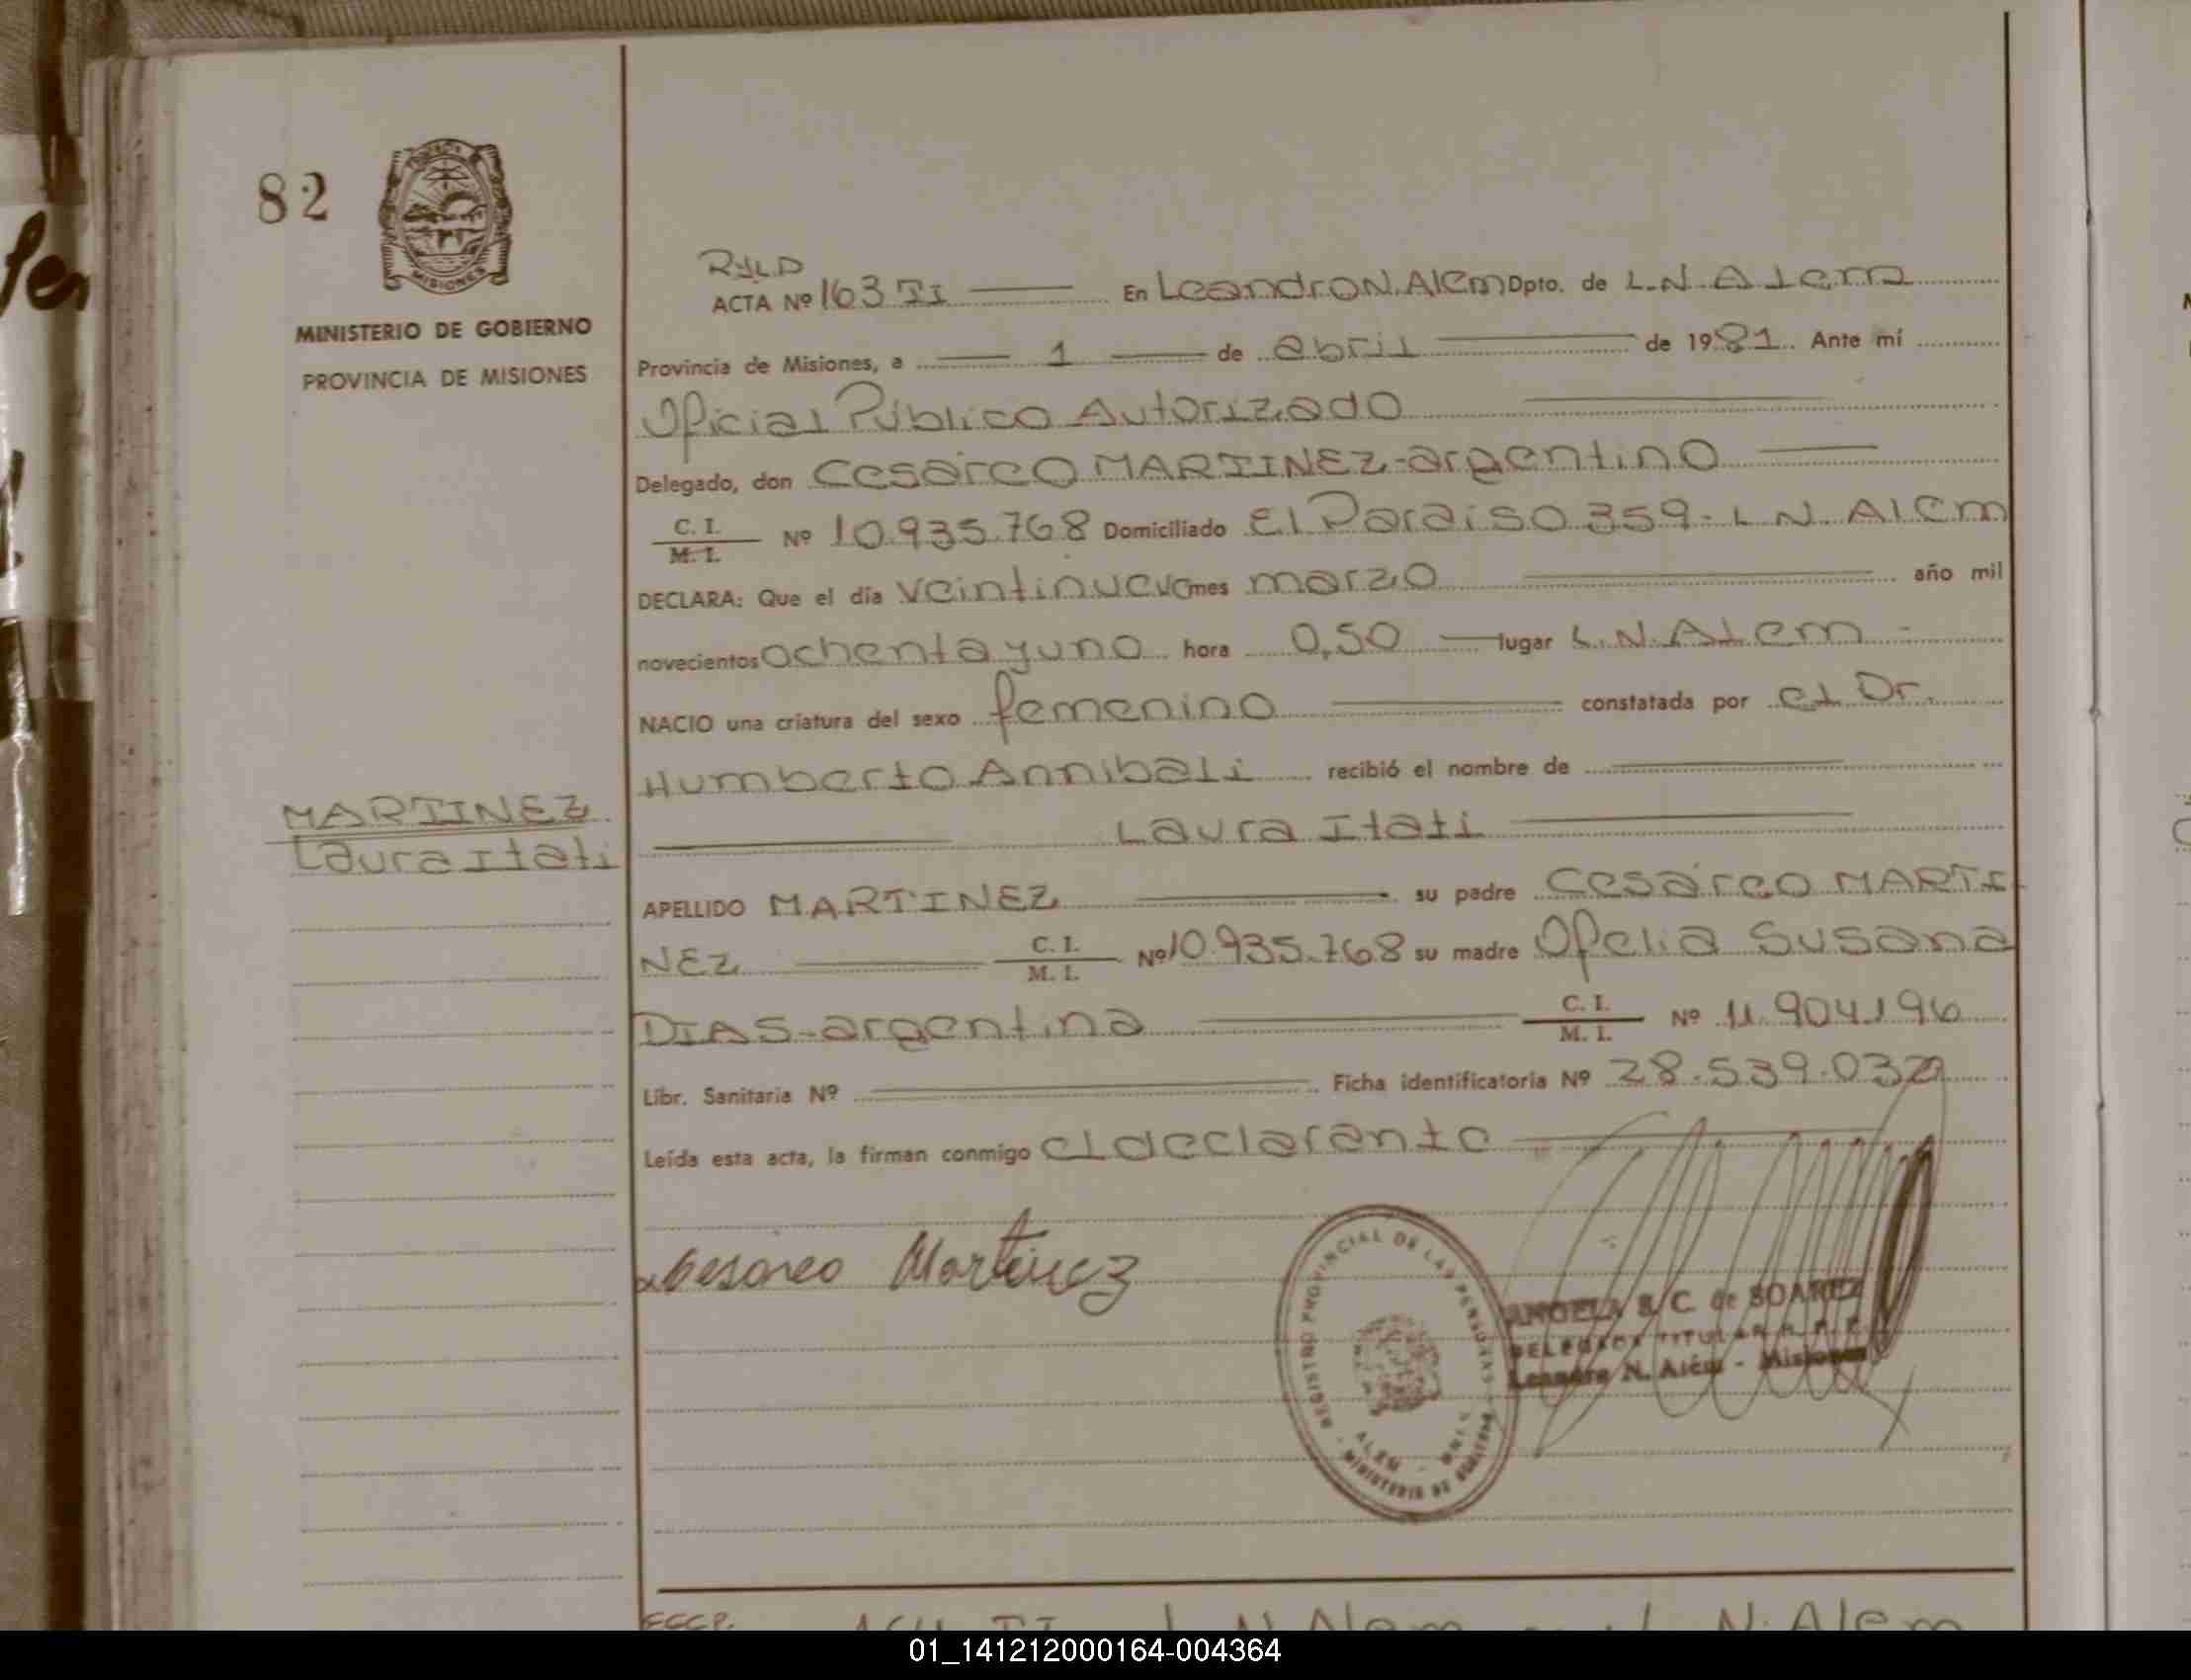 82
MISIONES
MINISTERIO DE GOBIERNO
PROVINCIA DE MISIONES
MARTINEZ
Laura Itati
R.y.L.D
ACTA Nº 163 TI En Leandro N. Alem Dpto. de L.N. Alem
Provincia de Misiones, a 1 de abril de 1981. Ante mí
Oficial Público Autorizado
Delegado, don Cesáreo MARTINEZ-argentino
C. I. / M. I. Nº 10.935.768 Domiciliado El Paraiso 359 - L N. Alem
DECLARA: Que el día veintinueve mes marzo año mil
novecientos ochenta y uno hora 0,50 lugar L.N. Alem -
NACIO una criatura del sexo femenino constatada por el Dr.
Humberto Annibali recibió el nombre de
Laura Itati
APELLIDO MARTINEZ su padre Cesáreo MARTI
NEZ C. I. / M. I. Nº 10.935.768 su madre Ofelia Susana
DIAS-argentina C. I. / M. I. Nº 11.904.196
Libr. Sanitaria Nº Ficha identificatoria Nº 28.539.032
Leída esta acta, la firman conmigo el declarante
Cesareo Martinez
REGISTRO PROVINCIAL DE LAS PERSONAS
ALEM
MINISTERIO DE GOBIERNO
ANGELA B. C. de SOAREZ
DELEGADA TITULAR R. P. P.
Leandro N. Além - Misiones
L N. Alem L N. Alem
01_141212000164-004364